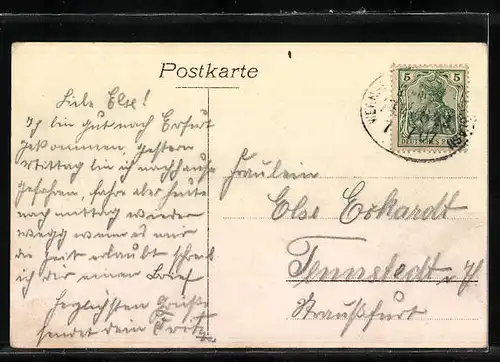 Postkarte
Liebe Else!
Ich bin gut nach Erfurt
gekommen, gestern
Mittag bin ich nachhause
gefahren, fahre aber heute
nachmittag wieder
wegg wenn es mir
die Zeit erlaubt schreib
ich dir einen Brief
Herzlichsten Gruß
sendet dein Fritz
5 5
DEUTSCHES REICH
Fräulein
Else Eckardt
Tennstedt
Straußfurt